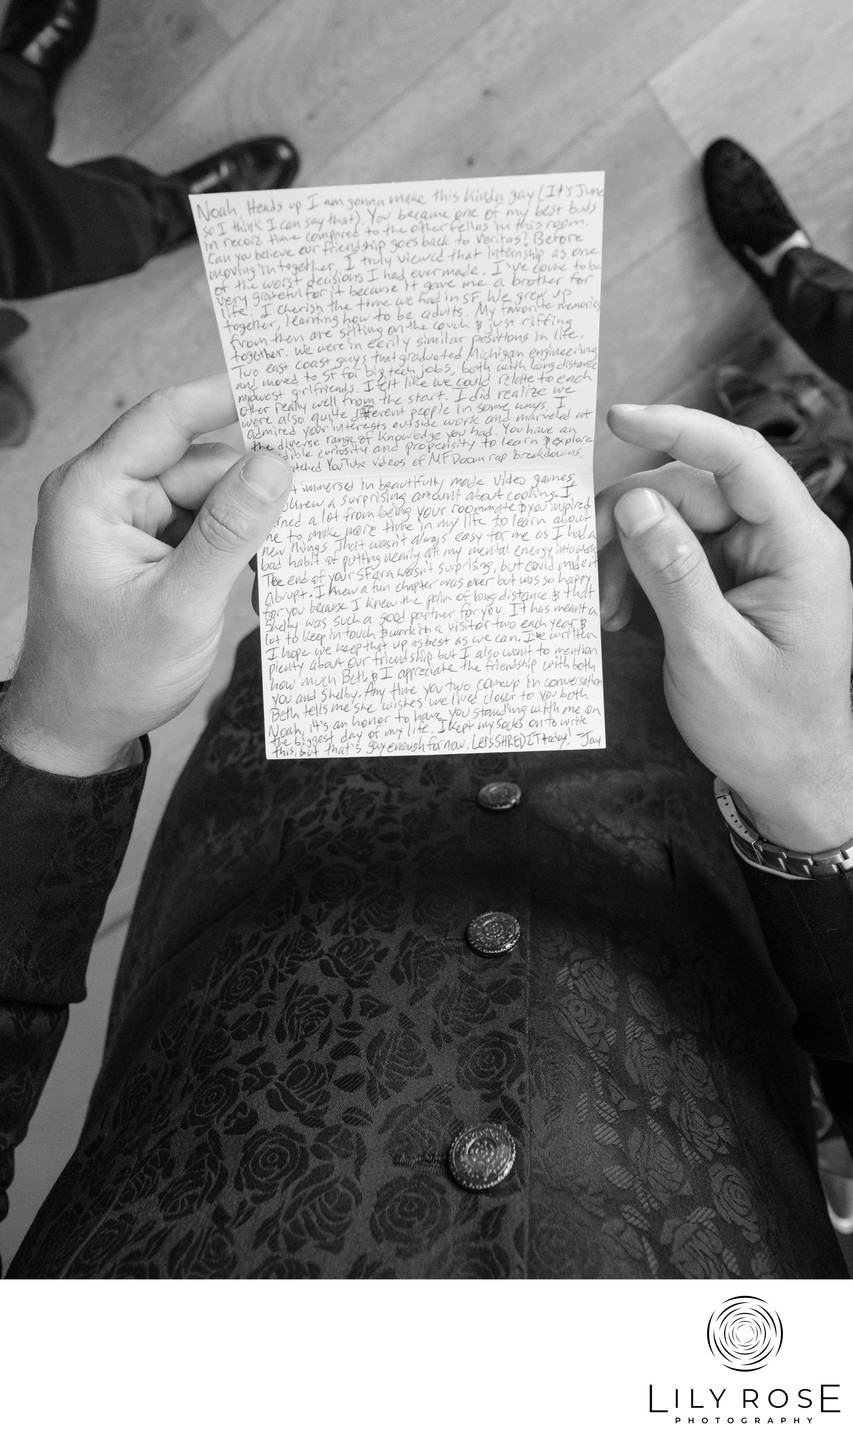 Noah, Heads up I am gonna make this kinda gay (It's June
so I think I can say that). You became one of my best buds
in record time compared to the other fellas in this room.
Can you believe our friendship goes back to Veritas? Before
moving in together, I truly viewed that internship as one
of the worst decisions I had ever made. I've come to be
very grateful for it because it gave me a brother for
life. I cherish the time we had in SF. We grew up
together, learning how to be adults. My favorite memories
from then are sitting on the couch & just riffing
together. We were in eerily similar positions in life.
Two east coast guys that graduated Michigan engineering
and moved to SF for big tech jobs, both with long distance
midwest girlfriends. I felt like we could relate to each
other really well from the start. I did realize we
were also quite different people in some ways. I
admired your interests outside work and marveled at
the diverse range of knowledge you had. You have an
curiosity and propensity to learn & explore
YouTube videos of MF Doom rap breakdowns,
immersed in beautifully made video games,
knew a surprising amount about cooking. I
a lot from being your roommate & you inspired
me to make more time in my life to learn about
new things. That wasn't always easy for me as I had a
bad habit of putting nearly all my mental energy into work.
The end of your SF era wasn't surprising, but could
abrupt. I knew a fun chapter was over but was so happy
for you because I knew the pain of long distance & that
Shelby was such a good partner for you. It has meant a
lot to keep in touch & work in a visitor two each year &
I hope we keep that up as best as we can. I've written
plenty about our friendship but I also want to mention
how much Beth & I appreciate the friendship with both
you and Shelby. Any time you two come up in conversation
Beth tells me she wishes we lived closer to you both.
Noah, it's an honor to have you standing with me on
the biggest day of my life. I kept my socks on to write
this, but that's gay enough for now. LET'S SHRED IT today! Jay
LILY ROSE
PHOTOGRAPHY